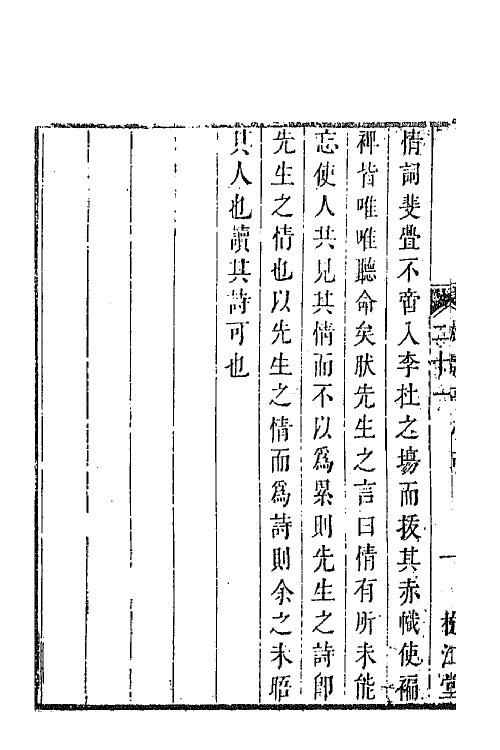 情詞斐亹不啻入李杜之場而拔其赤幟使褊
裨皆唯唯聽命矣狀先生之言曰情有所未能
忘使人共見其情而不以為累則先生之詩即
先生之情也以先生之情而為詩則余之未晤
其人也讀其詩可也
二十一
一
江堂